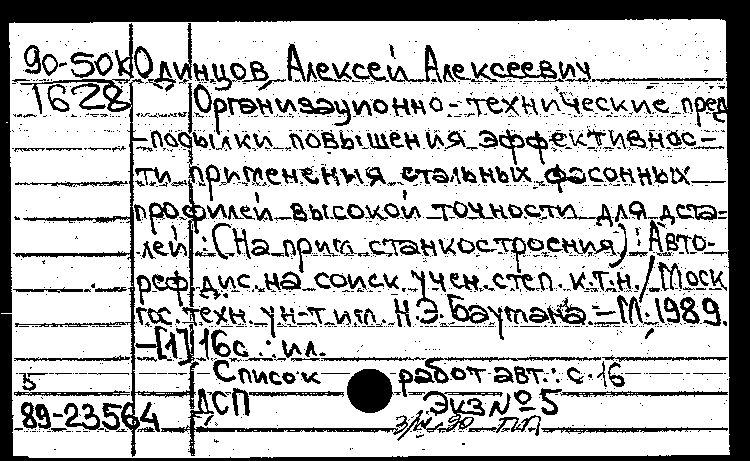 90-50к Одинцов, Алексей Алексеевич
1628 Организационно-технические пред
-посылки повышения эффективнос-
ти применения стальных фасонных
профилей высокой точности для дета-
лей : (На прим. станкостроения) : Авто-
реф. дис. на соиск. учен. степ. к.т.н. / Моск
гос. техн. ун-т им. Н.Э. Баумана. - М., 1989.
-[1] 16с. : ил.
Список работ авт.: с. 16
5
89-23564 ДСП Экз № 5